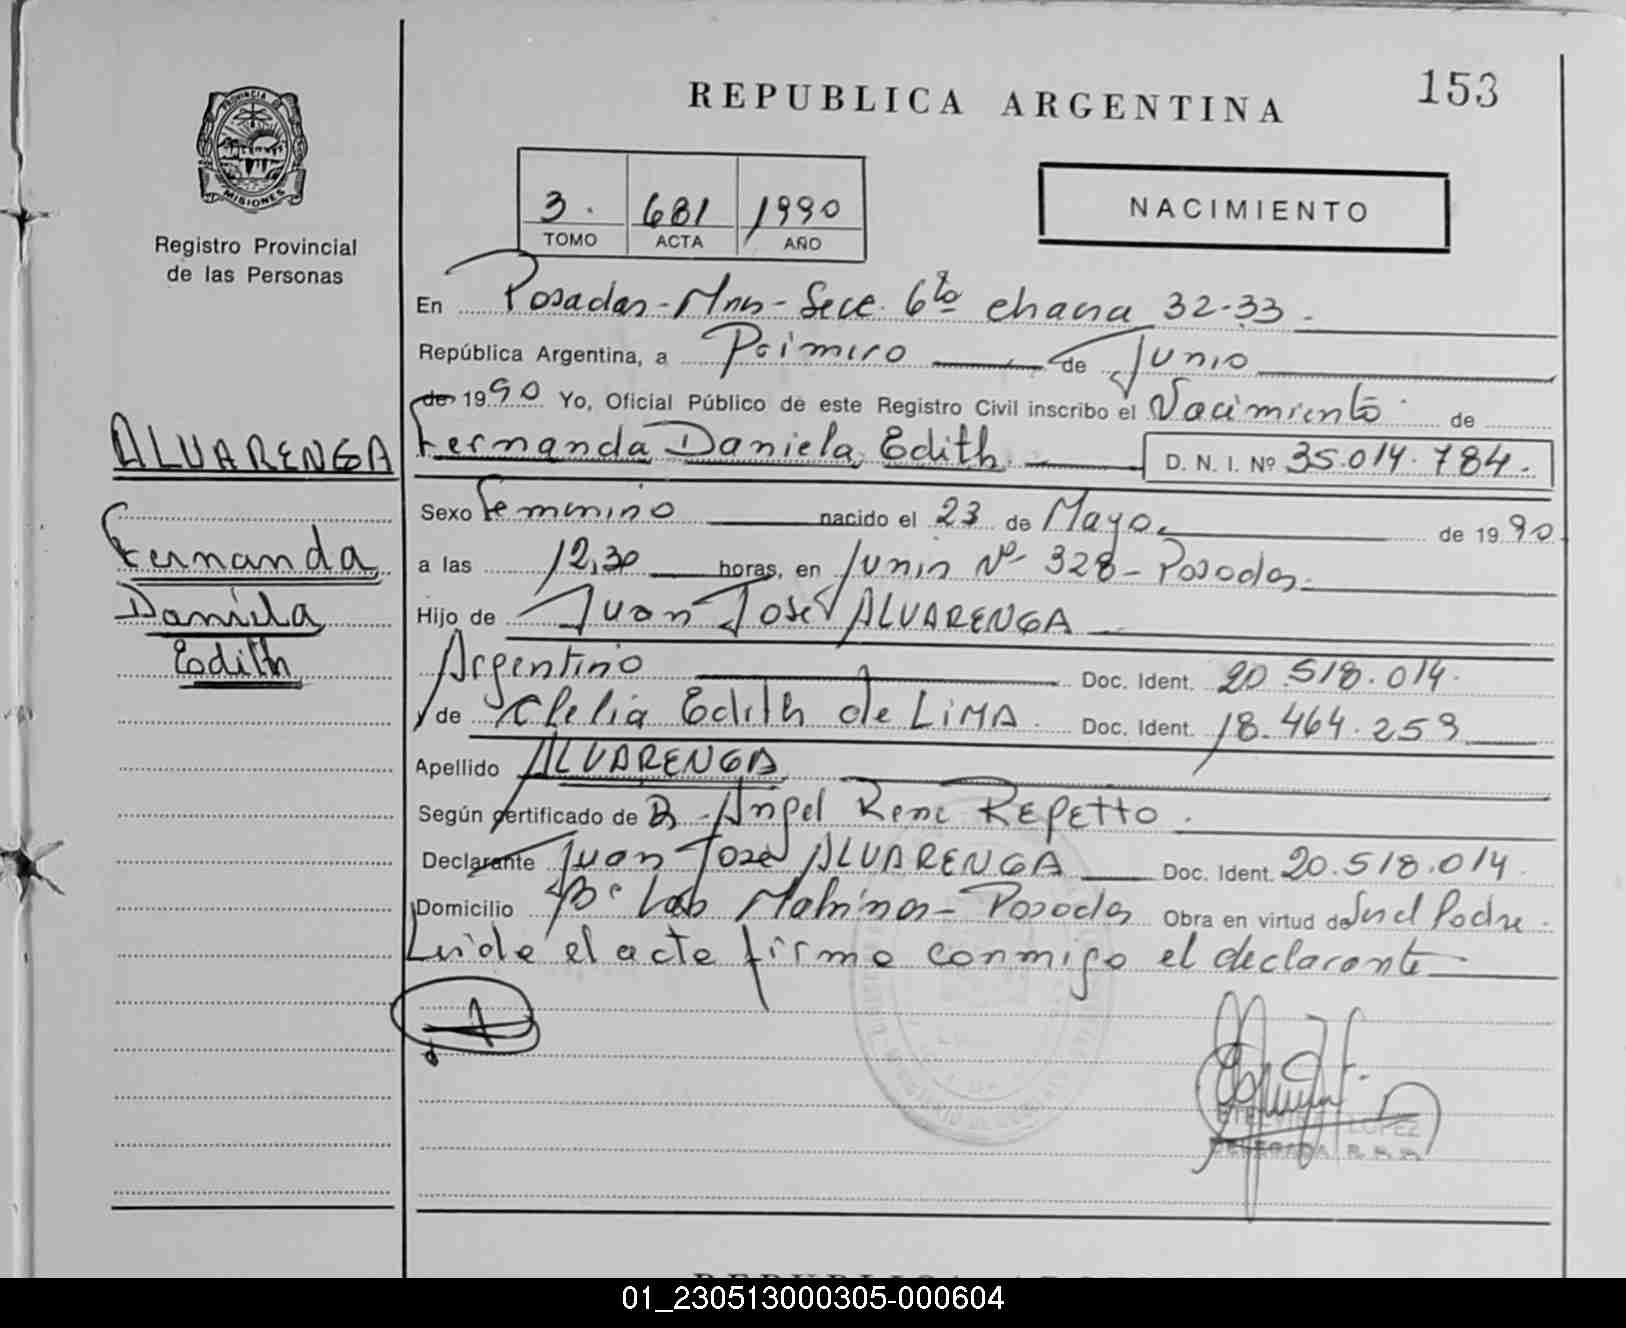 153
REPUBLICA ARGENTINA
PROVINCIA DE
MISIONES
Registro Provincial
de las Personas
3. 681 1990
TOMO ACTA AÑO
NACIMIENTO
En Posadas - Mnes - Secc. 6ta chacra 32-33.
República Argentina, a Primero de Junio
de 1990 Yo, Oficial Público de este Registro Civil inscribo el Nacimiento de
Fernanda Daniela Edith D. N. I. Nº 35.014.784.
ALVARENGA
Fernanda
Daniela
Edith
Sexo Femenino nacido el 23 de Mayo. de 1990
a las 12,30 horas, en Junin Nº 328 - Posadas.
Hijo de Juan José ALVARENGA
Argentino Doc. Ident. 20.518.014.
y de Clelia Edith de LIMA. Doc. Ident. 18.464.259
Apellido ALVARENGA
Según certificado de Dr. Angel Rene REPETTO.
Declarante Juan José ALVARENGA Doc. Ident. 20.518.014.
Domicilio Bº Las Malvinas - Posadas Obra en virtud de Ser el Padre.
Leida el acta firma conmigo el declarante
ETELVINA LOPEZ
DELEGADA R.
01_230513000305-000604